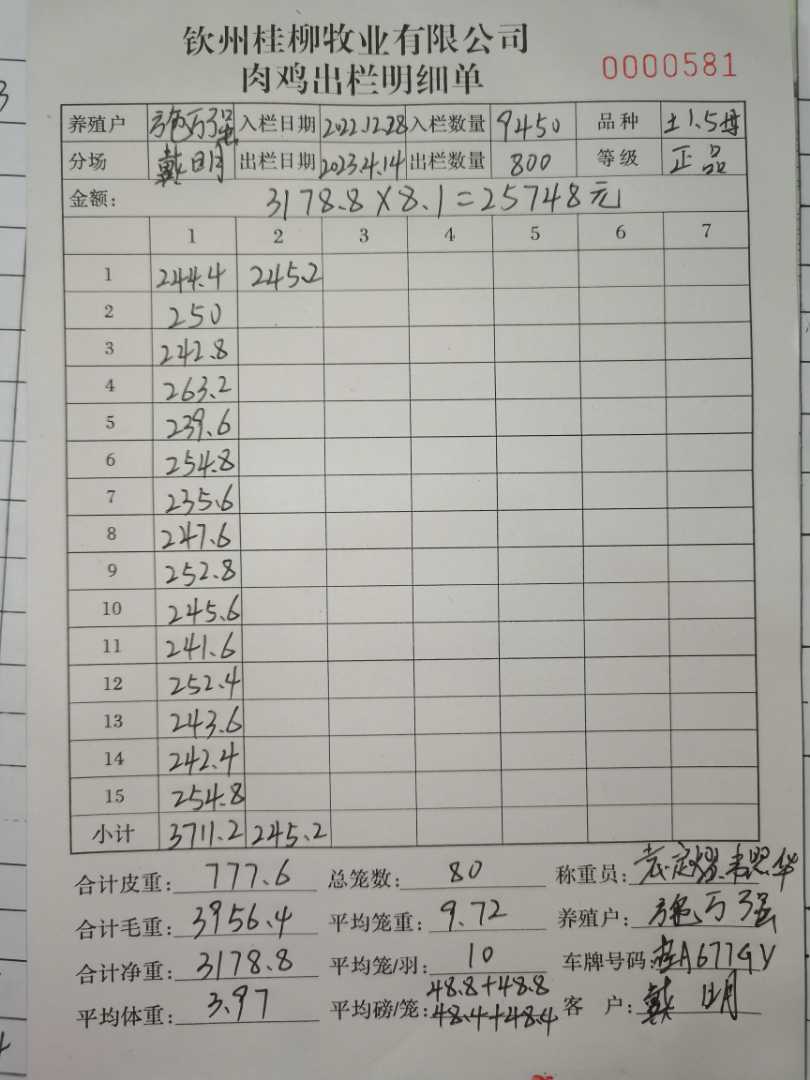 钦州桂柳牧业有限公司
肉鸡出栏明细单
0000581
养殖户 施万强 入栏日期 2022.12.28 入栏数量 9450 品种 土1.5母
分场 戴明 出栏日期 2023.4.14 出栏数量 800 等级 正品
金额: 3178.8×8.1=25748元
1 2 3 4 5 6 7
1 244.4 245.2
2 250
3 242.8
4 263.2
5 239.6
6 254.8
7 235.6
8 247.6
9 252.8
10 245.6
11 241.6
12 252.4
13 243.6
14 242.4
15 254.8
小计 3711.2 245.2
合计皮重: 777.6 总笼数: 80 称重员:
合计毛重: 3956.4 平均笼重: 9.72 养殖户: 施万强
合计净重: 3178.8 平均笼/羽: 10 车牌号码: 桂A677GV
平均体重: 3.97 平均磅/笼: 48.8+48.8 客户: 戴明
48.4+48.4